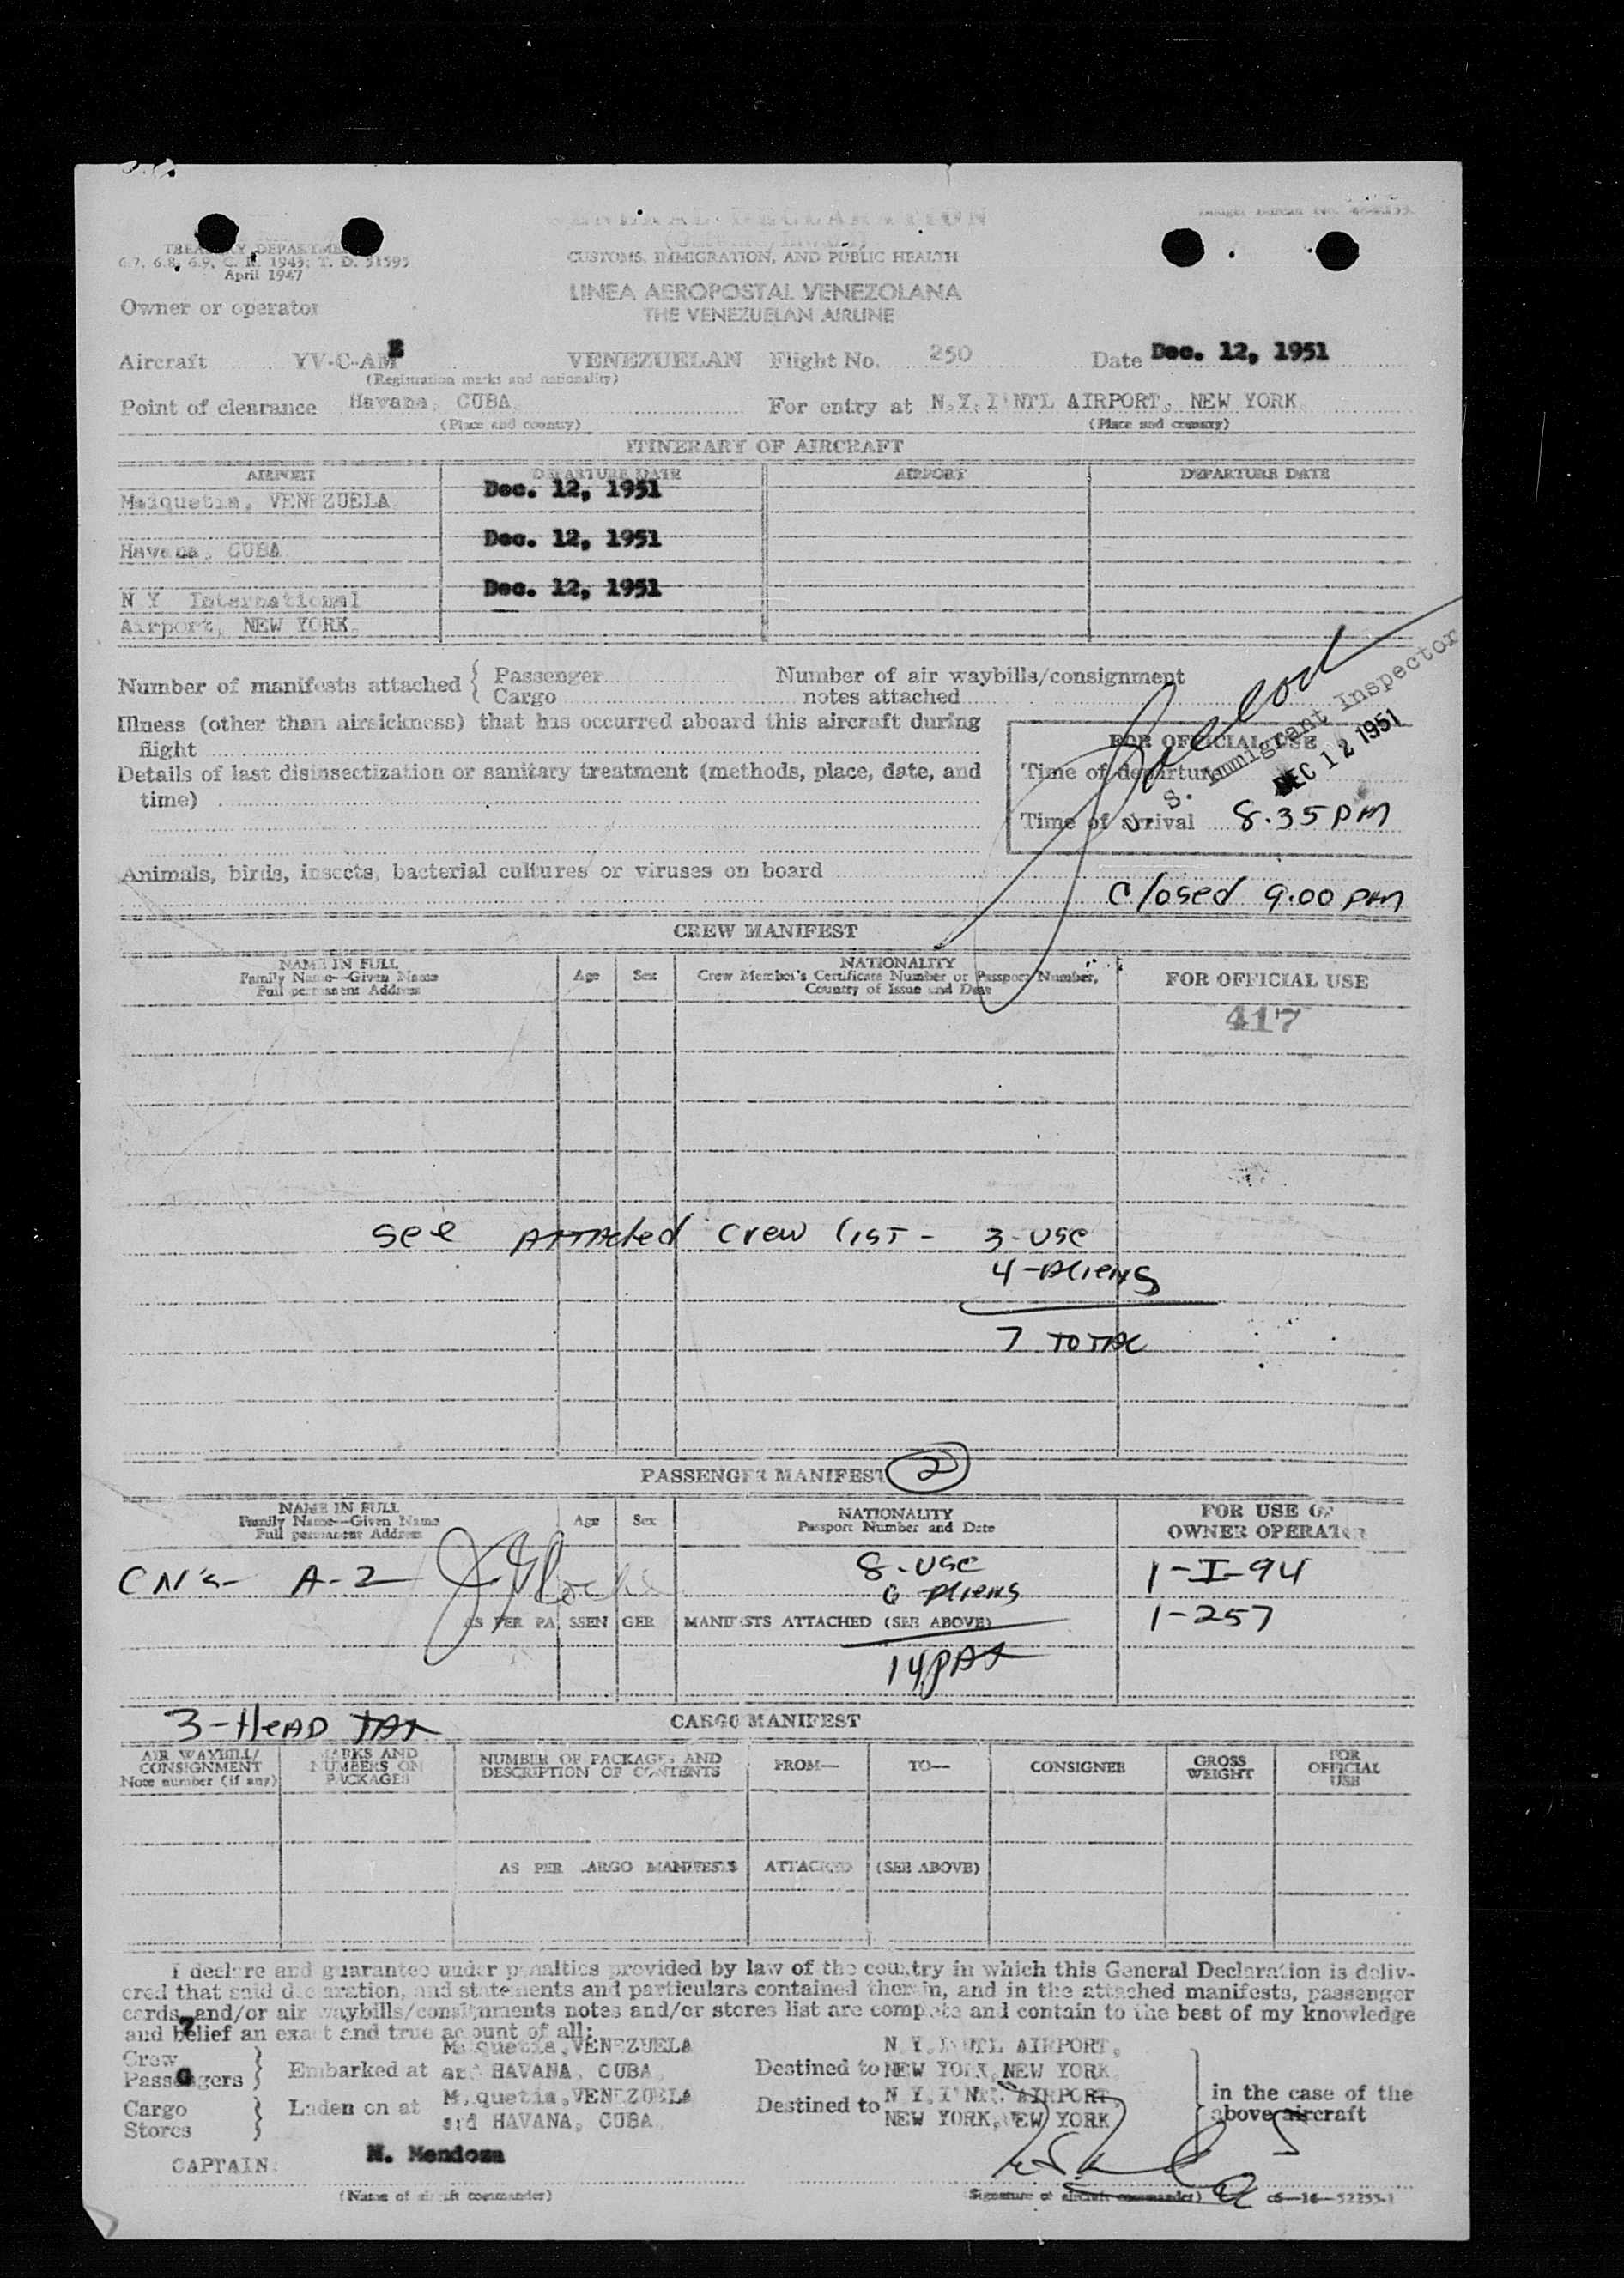 GENERAL DECLARATION
TREASURY DEPARTMENT
6.7, 6.8, 6.9, C. R. 1943; T. D. 51595
April 1947
CUSTOMS, IMMIGRATION, AND PUBLIC HEALTH
LINEA AEROPOSTAL VENEZOLANA
THE VENEZUELAN AIRLINE
Owner or operator
Aircraft YV-C-AME VENEZUELAN Flight No. 250 Date Dec. 12, 1951
(Registration marks and nationality)
Point of clearance Havana, CUBA. For entry at N.Y. I'NTL AIRPORT, NEW YORK
(Place and country) (Place and country)
ITINERARY OF AIRCRAFT
AIRPORT DEPARTURE DATE AIRPORT DEPARTURE DATE
Maiquetia, VENEZUELA Dec. 12, 1951
Havana, CUBA Dec. 12, 1951
N Y International Dec. 12, 1951
Airport, NEW YORK.
Number of manifests attached { Passenger
Cargo
Number of air waybills/consignment
notes attached
Illness (other than airsickness) that has occurred aboard this aircraft during
flight
Details of last disinsectization or sanitary treatment (methods, place, date, and
time)
FOR OFFICIAL USE
Time of departure
Time of arrival 8.35 PM
U. S. Immigrant Inspector
DEC 12 1951
Animals, birds, insects, bacterial cultures or viruses on board
Closed 9.00 PM
CREW MANIFEST
NAME IN FULL
Family Name--Given Name
Full permanent Address
Age Sex
NATIONALITY
Crew Member's Certificate Number or Passport Number,
Country of Issue and Date
FOR OFFICIAL USE
417
See Attached Crew list - 3-USC
4-Aliens
7 TOTAL
PASSENGER MANIFEST 2
NAME IN FULL
Family Name--Given Name
Full permanent Address
Age Sex
NATIONALITY
Passport Number and Date
FOR USE OF
OWNER OPERATOR
CN's- A-2 8-USC 1-I-94
6 Aliens
AS PER PASSENGER MANIFESTS ATTACHED (SEE ABOVE) 1-257
14 PAX
3-HEAD TAX
CARGO MANIFEST
AIR WAYBILL/
CONSIGNMENT
Note number (if any)
MARKS AND
NUMBERS ON
PACKAGES
NUMBER OF PACKAGES AND
DESCRIPTION OF CONTENTS
FROM— TO— CONSIGNEE
GROSS
WEIGHT
FOR
OFFICIAL
USE
AS PER CARGO MANIFESTS ATTACHED (SEE ABOVE)
I declare and guarantee under penalties provided by law of the country in which this General Declaration is deliv-
ered that said declaration, and statements and particulars contained therein, and in the attached manifests, passenger
cards, and/or air waybills/consignments notes and/or stores list are complete and contain to the best of my knowledge
and belief an exact and true account of all:
7
Crew
Passengers } Embarked at Maiquetia, VENEZUELA
and HAVANA, CUBA
Destined to N Y. I'NTL AIRPORT,
NEW YORK, NEW YORK
Cargo
Stores } Laden on at Maiquetia, VENEZUELA
and HAVANA, CUBA
Destined to N Y. I'NTL AIRPORT,
NEW YORK, NEW YORK
in the case of the
above aircraft
CAPTAIN: N. Mendoza
(Name of aircraft commander) Signature of aircraft commander)